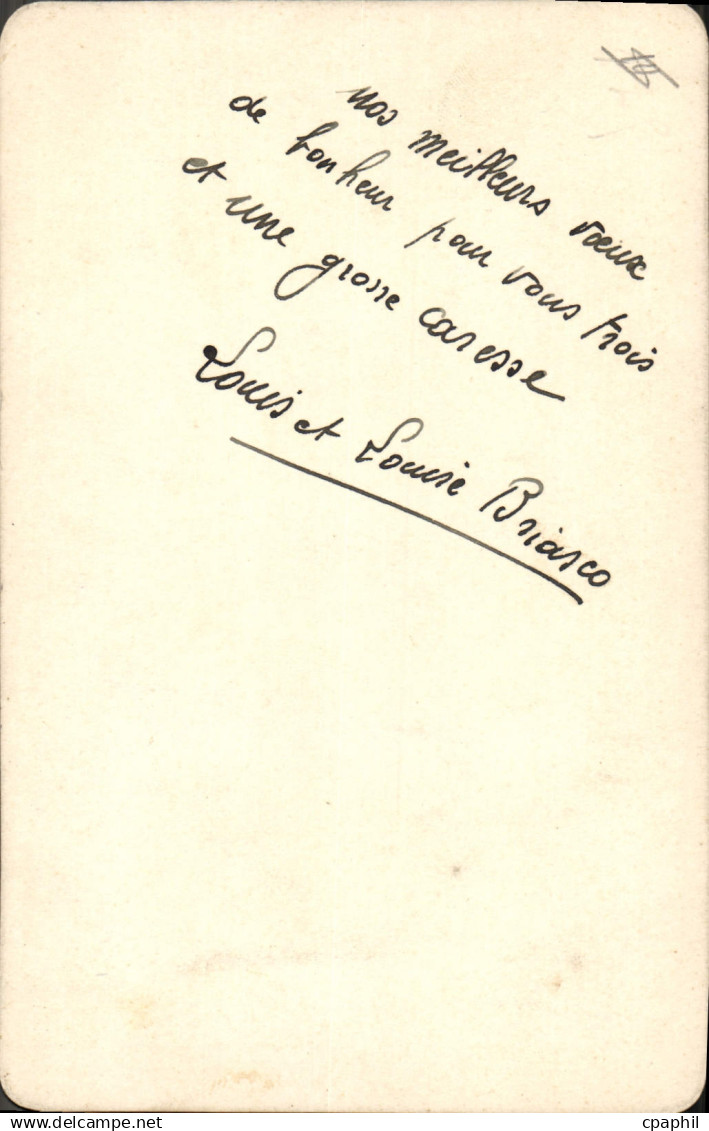 nos meilleurs vœux
de bonheur pour vous trois
et une grosse caresse
Louis et Louise Briasco
delcampe.net
cpaphil